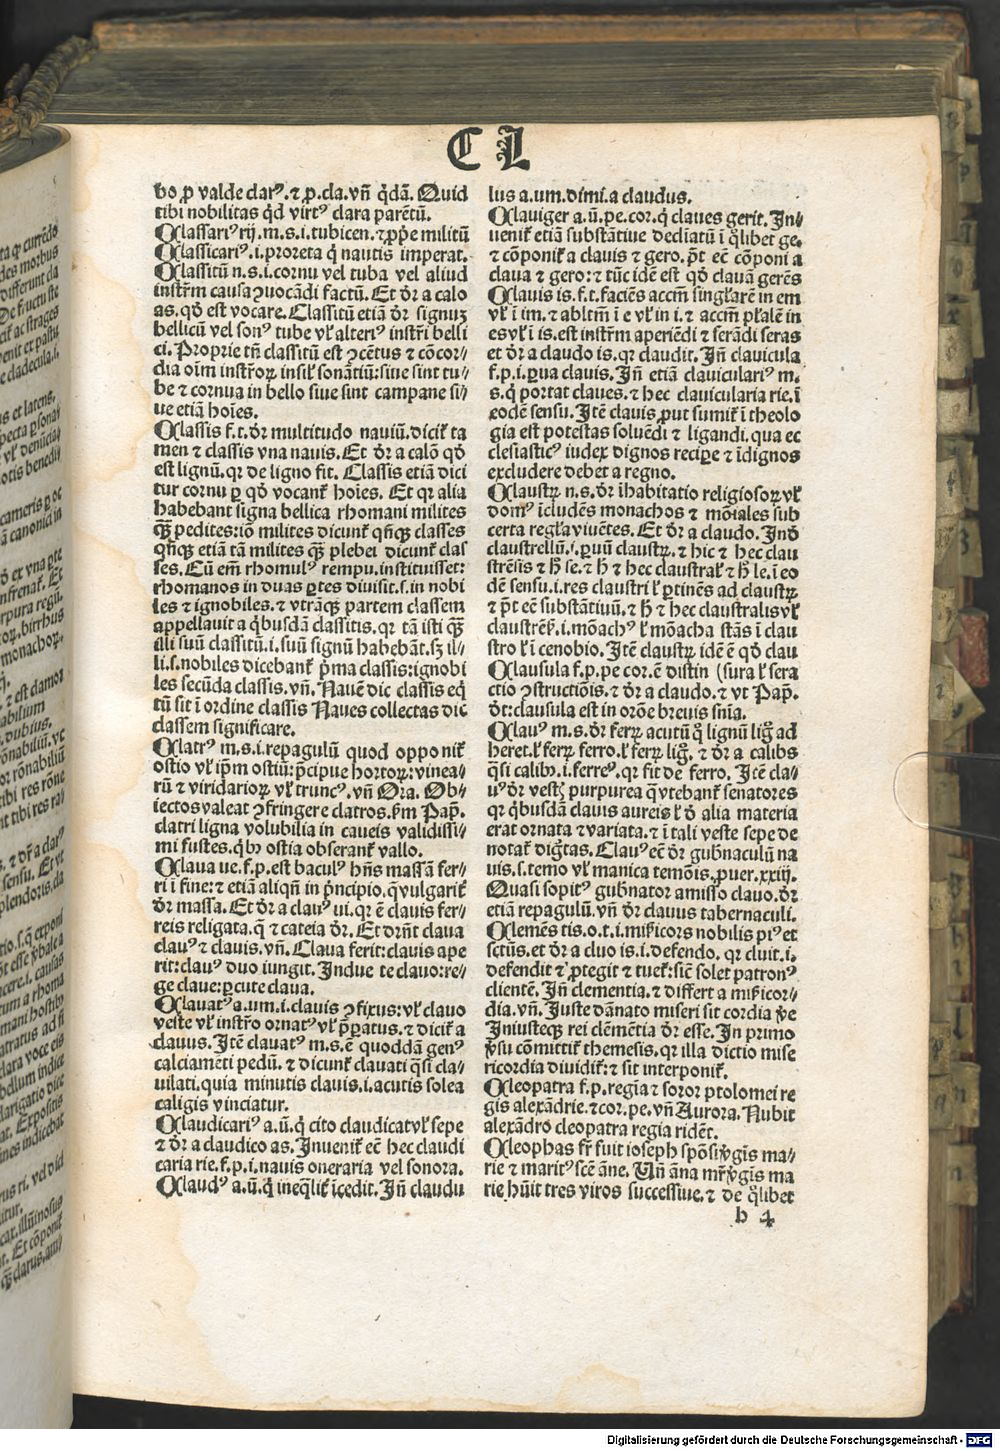 C L
bo ꝓ valde clarꝰ.⁊ ꝓ.cla.vñ q̇dã. Quid
tibi nobilitas q̇d virtꝰ clara parẽtũ.
Classariꝰ rij.m.s.i.tubicen.⁊ꝓp̃e militũ
Classicariꝰ.i.proreta q̇ nautis imperat.
Classicũ n.s.i.cornu vel tuba vel aliud
instr̃m causa ꝯuocãdi factũ. Et dr̃ a calo
as.qđ est vocare. Classicũ etiã dr̃ signuꝫ
bellicũ vel sonꝰ tube vľ alteriꝰ instr̃i belli
ci. Proprie tñ classicũ est ꝯcẽtus ⁊ cõcor⸗
dia oĩm instr̃oꝝ insiľ sonãtiũ: siue sint tu⸗
be ⁊ cornua in bello siue sint campane si⸗
ue etiã hoĩes.
Classis f.t.dr̃ multitudo nauiũ.dicit̃ ta
men ⁊ classis vna nauis. Et dr̃ a calõ qđ
est lignũ.qr de ligno fit. Classis etiã dici
tur cornu ꝑ qđ vocant̃ hoĩes. Et qr alia
habebant signa bellica rhomani milites
q̃ꝫ pedites:iõ milites dicunt̃ qñqꝫ classes
qñqꝫ etiã tã milites q̃ꝫ plebei dicunt̃ clas
ses. Cũ em̃ rhomulꝰ rempu.instituisset:
rhomanos in duas ꝑtes diuisit.s.in nobi
les ⁊ ignobiles.⁊ vtrãqꝫ partem classem
appellauit a q̇busdã classicis.qr tã isti q̃ꝫ
illi suũ classicũ.i.suũ signũ habebãt.sꝫ il⸗
li.s.nobiles dicebant̃ p̃ma classis:ignobi
les secũda classis.vñ. Nauẽ dic classis eq̇
tũ sit ĩ ordine classis Naues collectas dic̃
classem significare.
Clatrꝰ m.s.i.repagulũ quod opponit̃
ostio vľ ip̃m ostiũ:p̃cipue hortoꝝ:vinea⸗
rũ ⁊ viridarioꝝ vľ truncꝰ.vñ Ora. Ob⸗
iectos valeat ꝯfringere clatros.ẜm Pap̃.
clatri ligna volubilia in caueis validissi⸗
mi fustes.q̇bꝰ ostia obserant̃ vallo.
Claua ue.f.p.est baculꝰ hñs massã fer⸗
ri ĩ fine:⁊ etiã aliqñ in p̃ncipio.q̃ vulgarit̃
dr̃ massa. Et dr̃ a clauꝰ ui.qr ẽ clauis fer⸗
reis religata.q̃ ⁊ cateia dr̃. Et dr̃nt claua
clauꝰ ⁊ clauis.vñ. Claua ferit:clauis ape
rit:clauꝰ duo iungit. Indue te clauo:re⸗
ge claue:ꝑcute claua.
Clauatꝰ a.um.i.clauis ꝯfixus:vľ clauo
veste vľ instr̃o ornatꝰ vľ p̃ꝑatus.⁊ dicit̃ a
clauus. Itẽ clauatꝰ m.s.ẽ quoddã genꝰ
calciamẽti pedũ.⁊ dicunt̃ clauati q̃si cla⸗
uilati.quia minutis clauis.i.acutis solea
caligis vinciatur.
Claudicariꝰ a.ũ.q̇ cito claudicat vľ sepe
⁊ dr̃ a claudico as. Inuenit̃ ec̃ hec claudi
caria rie.f.p.i.nauis oneraria vel sonora.
Claudꝰ a.ũ.q̇ ineq̃lit̃ ĩcedit. Iñ claudu
lus a.um.dimi.a claudus.
Clauiger a.ũ.pe.cor.q̇ claues gerit. In⸗
uenit̃ etiã substãtiue declĩatũ ĩ q̃libet ge.
⁊ cõponit̃ a clauis ⁊ gero.p̃t ec̃ cõponi a
claua ⁊ gero:⁊ tũc idẽ est qđ clauã gerẽs
Clauis is.f.t.faciẽs acc̃m singľarẽ in em
vľ ĩ im.⁊ ablt̃m ĩ e vľ in i.⁊ acc̃m pľalẽ in
es vľ ĩ is.est instr̃m aperiẽdi ⁊ serãdi seras
et dr̃ a claudo is.qr claudit. Iñ clauicula
f.p.i.ꝑua clauis. Iñ etiã clauiculariꝰ m.
s.q̇ portat claues.⁊ hec clauicularia rie.ĩ
eodẽ sensu. Itẽ clauis ꝓut sumit̃ ĩ theolo
gia est potestas soluẽdi ⁊ ligandi.qua ec
clesiasticꝰ iudex dignos recipe ⁊ ĩdignos
excludere debet a regno.
Claustꝝ n.s.dr̃ ĩhabitatio religiosoꝝ vľ
domꝰ ĩcludẽs monachos ⁊ mõiales sub
certa regľa viuẽtes. Et dr̃ a claudo. Inđ
claustrellũ.i.ꝑuũ claustꝝ.⁊ hic ⁊ hec clau
strẽsis ⁊ h̃ se.⁊ h̃ ⁊ hec claustraľ ⁊ h̃ le.ĩ eo
dẽ sensu.i.res claustri ľ ꝑtinẽs ad claustꝝ
⁊ p̃t ec̃ substãtiuũ.⁊ h̃ ⁊ hec claustralis vľ
claustrẽs̃.i.mõachꝰ ľ mõacha stãs ĩ clau
stro ľ ĩ cenobio. Itẽ claustꝝ idẽ ẽ qđ clau
Clausula f.p.pe cor.ẽ distin (sura ľ sera
ctio ꝯstructiõis.⁊ dr̃ a claudo.⁊ vt Pap̃.
dt̃:clausula est in orõe breuis snĩa.
Clauꝰ m.s.dr̃ ferꝝ acutũ q̊ lignũ lig̊ ad
heret.ľ ferꝝ ferro.ľ ferꝝ lig̊.⁊ dr̃ a calibs
q̃si calibꝰ.i.ferreꝰ.qr fit de ferro. Itẽ cla⸗
uꝰ dr̃ vest̃ purpurea q̃ vtebant̃ senatores
qr q̇busdam clauis aureis ľ đ alia materia
erat ornata ⁊ variata.⁊ ĩ tali veste sepe de
notat̃ dig̃tas. Clauꝰ ec̃ dr̃ gub̃naculũ na
uis.s.temo vľ manica temõis.ꝓuer.xxiij.
Quasi sopitꝰ gub̃nator amisso clauo.dr̃
etiã repagulũ.vñ dr̃ clauus tabernaculi.
Clemẽs tis.o.t.i.mis̃icors nobilis piꝰ et
sctũs.et dr̃ a cluo is.i.defendo.qr cluit.i.
defendit ⁊ ꝓtegit ⁊ tuet̃:sic̃ solet patronꝰ
clientẽ. Iñ clementia.⁊ differt a mis̃icor⸗
dia.vñ. Iuste dãnato miseri sit cordia p̃e
Iniustecqꝫ rei clemẽtia dr̃ esse. In primo
ꝟsu cõmittit̃ themesis.qr illa dictio mise
ricordia diuidit̃:⁊ sit interponit̃.
Cleopatra f.p.regĩa ⁊ soror ptolomei re
gis alexãdrie.⁊cor.pe.vñ Aurora. Nubit
alexãdro cleopatra regia ridẽt.
Cleophas fr̃ fuit ioseph spõsi ꝟgĩs ma⸗
rie ⁊ maritꝰ scẽ ãne. Uñ ãna mr̃ ꝟgĩs ma
rie hũit tres viros successiue.⁊ de q̃libet
h 4
Digitalisierung gefördert durch die Deutsche Forschungsgemeinschaft - DFG